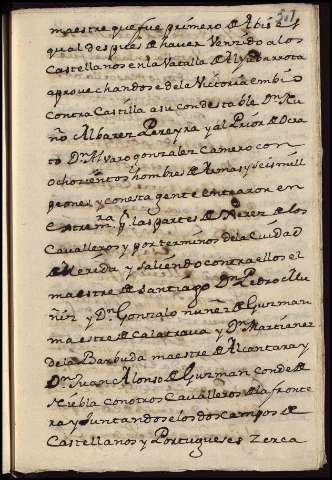 maestre que fue primero de Abis el
qual despues de haver Venzido alos
Castellanos enla Vatalla de Aljubarrota
aprovechandose dela Victoria embio
contra Castilla asu condestable Dn Nu
ño Albarez Pereyra y al Prior de Ocra
to Dn Alvaro gonzalez Camero con
ochozientos hombres de Armas y seis mill
peones y conesta gente entraron en
Extrem.ra p.r las partes de Xerez de los
Cavalleros y por terminos dela Ciudad
de Merida y saliendo contra ellos el
maestre de Santiago Dn Pedro Mu
ñiz y Dn Gonzalo nuñez de Guzman
maestre de Calatrava y Dn Martienez
dela Barbuda maestre de Alcantara y
Dn Juan Alonso de Guzman conde de
Niebla con otros Cavalleros de la fronte
ra y Juntandose los dos campos de
Castellanos y Portugueses Zerca